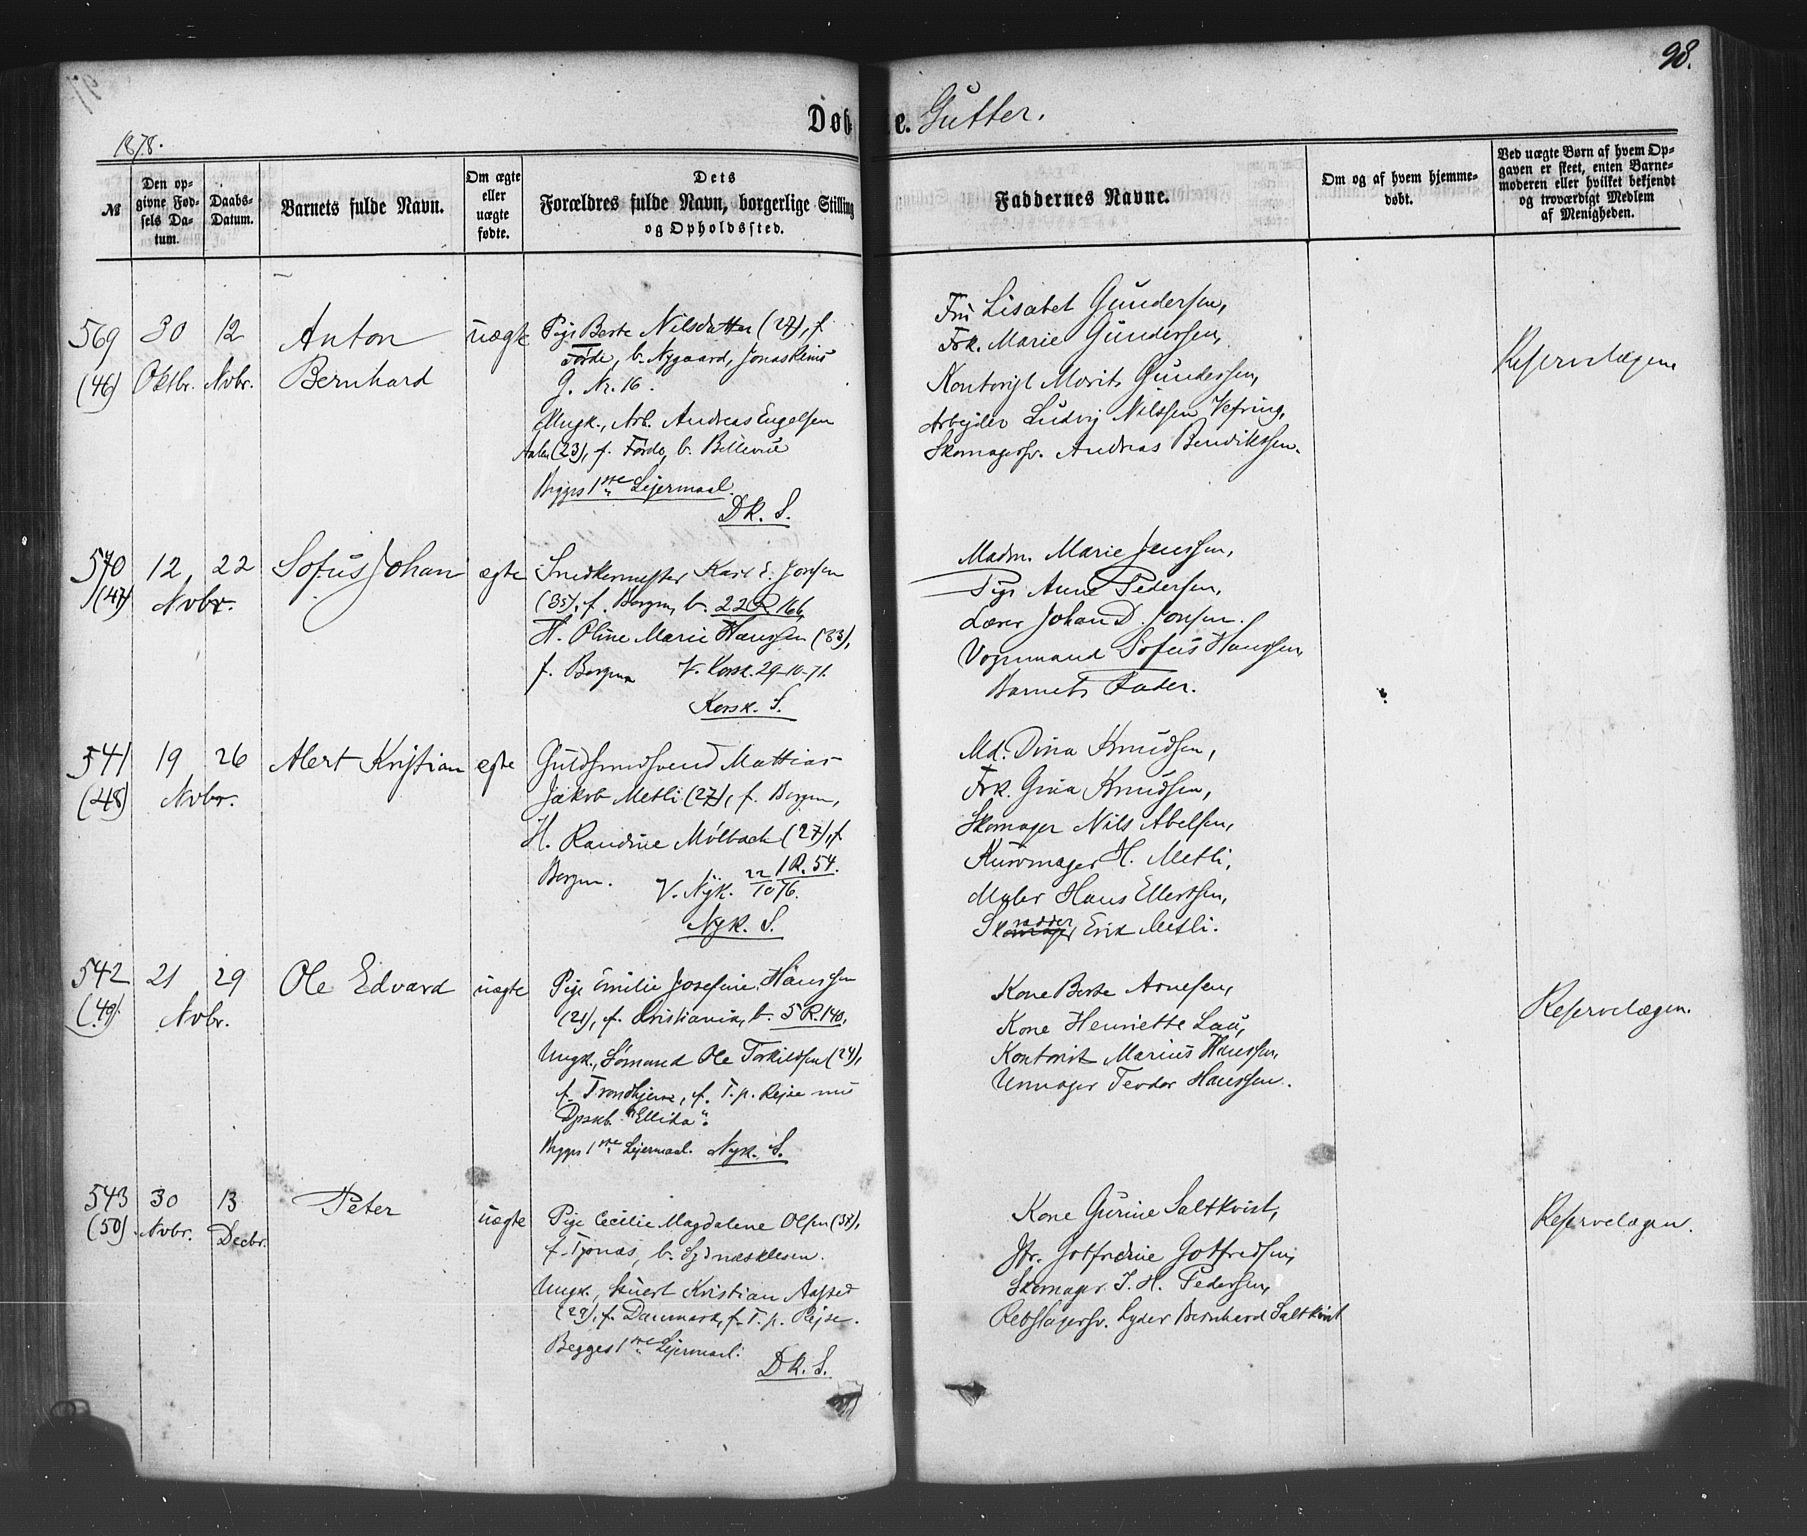 98.
Døb e. Gutter.
1878.
№
Den opgivne Fødsels Datum.
Daabs-Datum.
Barnets fulde Navn.
Om ægte eller uægte fødte.
Dets Forældres fulde Navn, borgerlige Stilling og Opholdssted.
Faddernes Navne.
Om og af hvem hjemmedøbt.
Ved uægte Børn af hvem Opgaven er skeet, enten Barnemoderen eller hvilket bekjendt og troværdigt Medlem af Menigheden.
569 30 12 Anton uægte
(46) Oktbr. Novbr. Bernhard
Pige Berte Nilsdatter (27), f.
Førde, b. Nygaard, Jonas Leins
G. Nr. 16.
Ungk., Arb. Andreas Engelsen
(23), f. Førde, b. Bellevue
Begges 1ste Lejermaal.
DK. S.
Fru Lisabet Gundersen,
Frk. Marie Gundersen,
Kontorist Morits Gundersen,
Arbejder Ludvig Nilssen Vefring,
Skomagersv. Andreas Bendikssen.
Reservelægen
570 12 22 Sofus Johan ægte
(47) Novbr.
Snedkermester Karl E. Jonsen
(35), f. Bergen, b. 22 R. 166,
H. Oline Marie Hanssen (33),
f. Bergen V. Korsk. 29-10-71.
Korsk. S.
Madm. Marie Jenssen,
Pige Anne Pedersen,
Lærer Johan D. Jonsen.
Vognmand Sofus Hanssen,
Barnets Fader.
541 19 26 Alert Kristian egte
(48) Novbr.
Guldsmedsvend Mattias
Jakob Metli (27), f. Bergen,
H. Randine Mølbach (27), f.
Bergen. 1 R. 54.
V. Nyk. 22/10 76.
Nyk. S.
Md. Dina Knudsen,
Frk. Gina Knudsen,
Skomager Nils Abelsen,
Kurvmager H. Metli,
Maler Hans Ellertsen,
Skrædder Erik Metli.
542 21 29 Ole Edvard uægte
(49) Novbr.
Pige Emilie Josefine Hanssen
(21), f. Kristiania, b. 5 R. 140,
Ungk., Sømand Ole Torkildsen (24),
f. Trondhjem, f. T. p. Rejse med
Dpskb. "Ellida".
Begges 1ste Lejermaal. Nyk. S.
Kone Berte Arnesen,
Kone Henriette Lau,
Kontorist Marius Hanssen,
Urmager Teodor Hanssen.
Reservelægen.
543 30 13 Peter uægte
(50) Novbr. Decbr.
Pige Cecilie Magdalene Olsen (38),
f. b. Sydnæsklesen.
Ungk., Stuert Kristian
(29), f. Danmark, f. T. p. Rejse.
Begges 1ste Lejermaal.
DK. S.
Kone Gurine Saltkvist,
Jfr. Gotfredine Gotfredsen,
Skomager J. H. Pedersen,
Rebslagersv. Lyder Bernhard Saltkvist
Reservelægen.